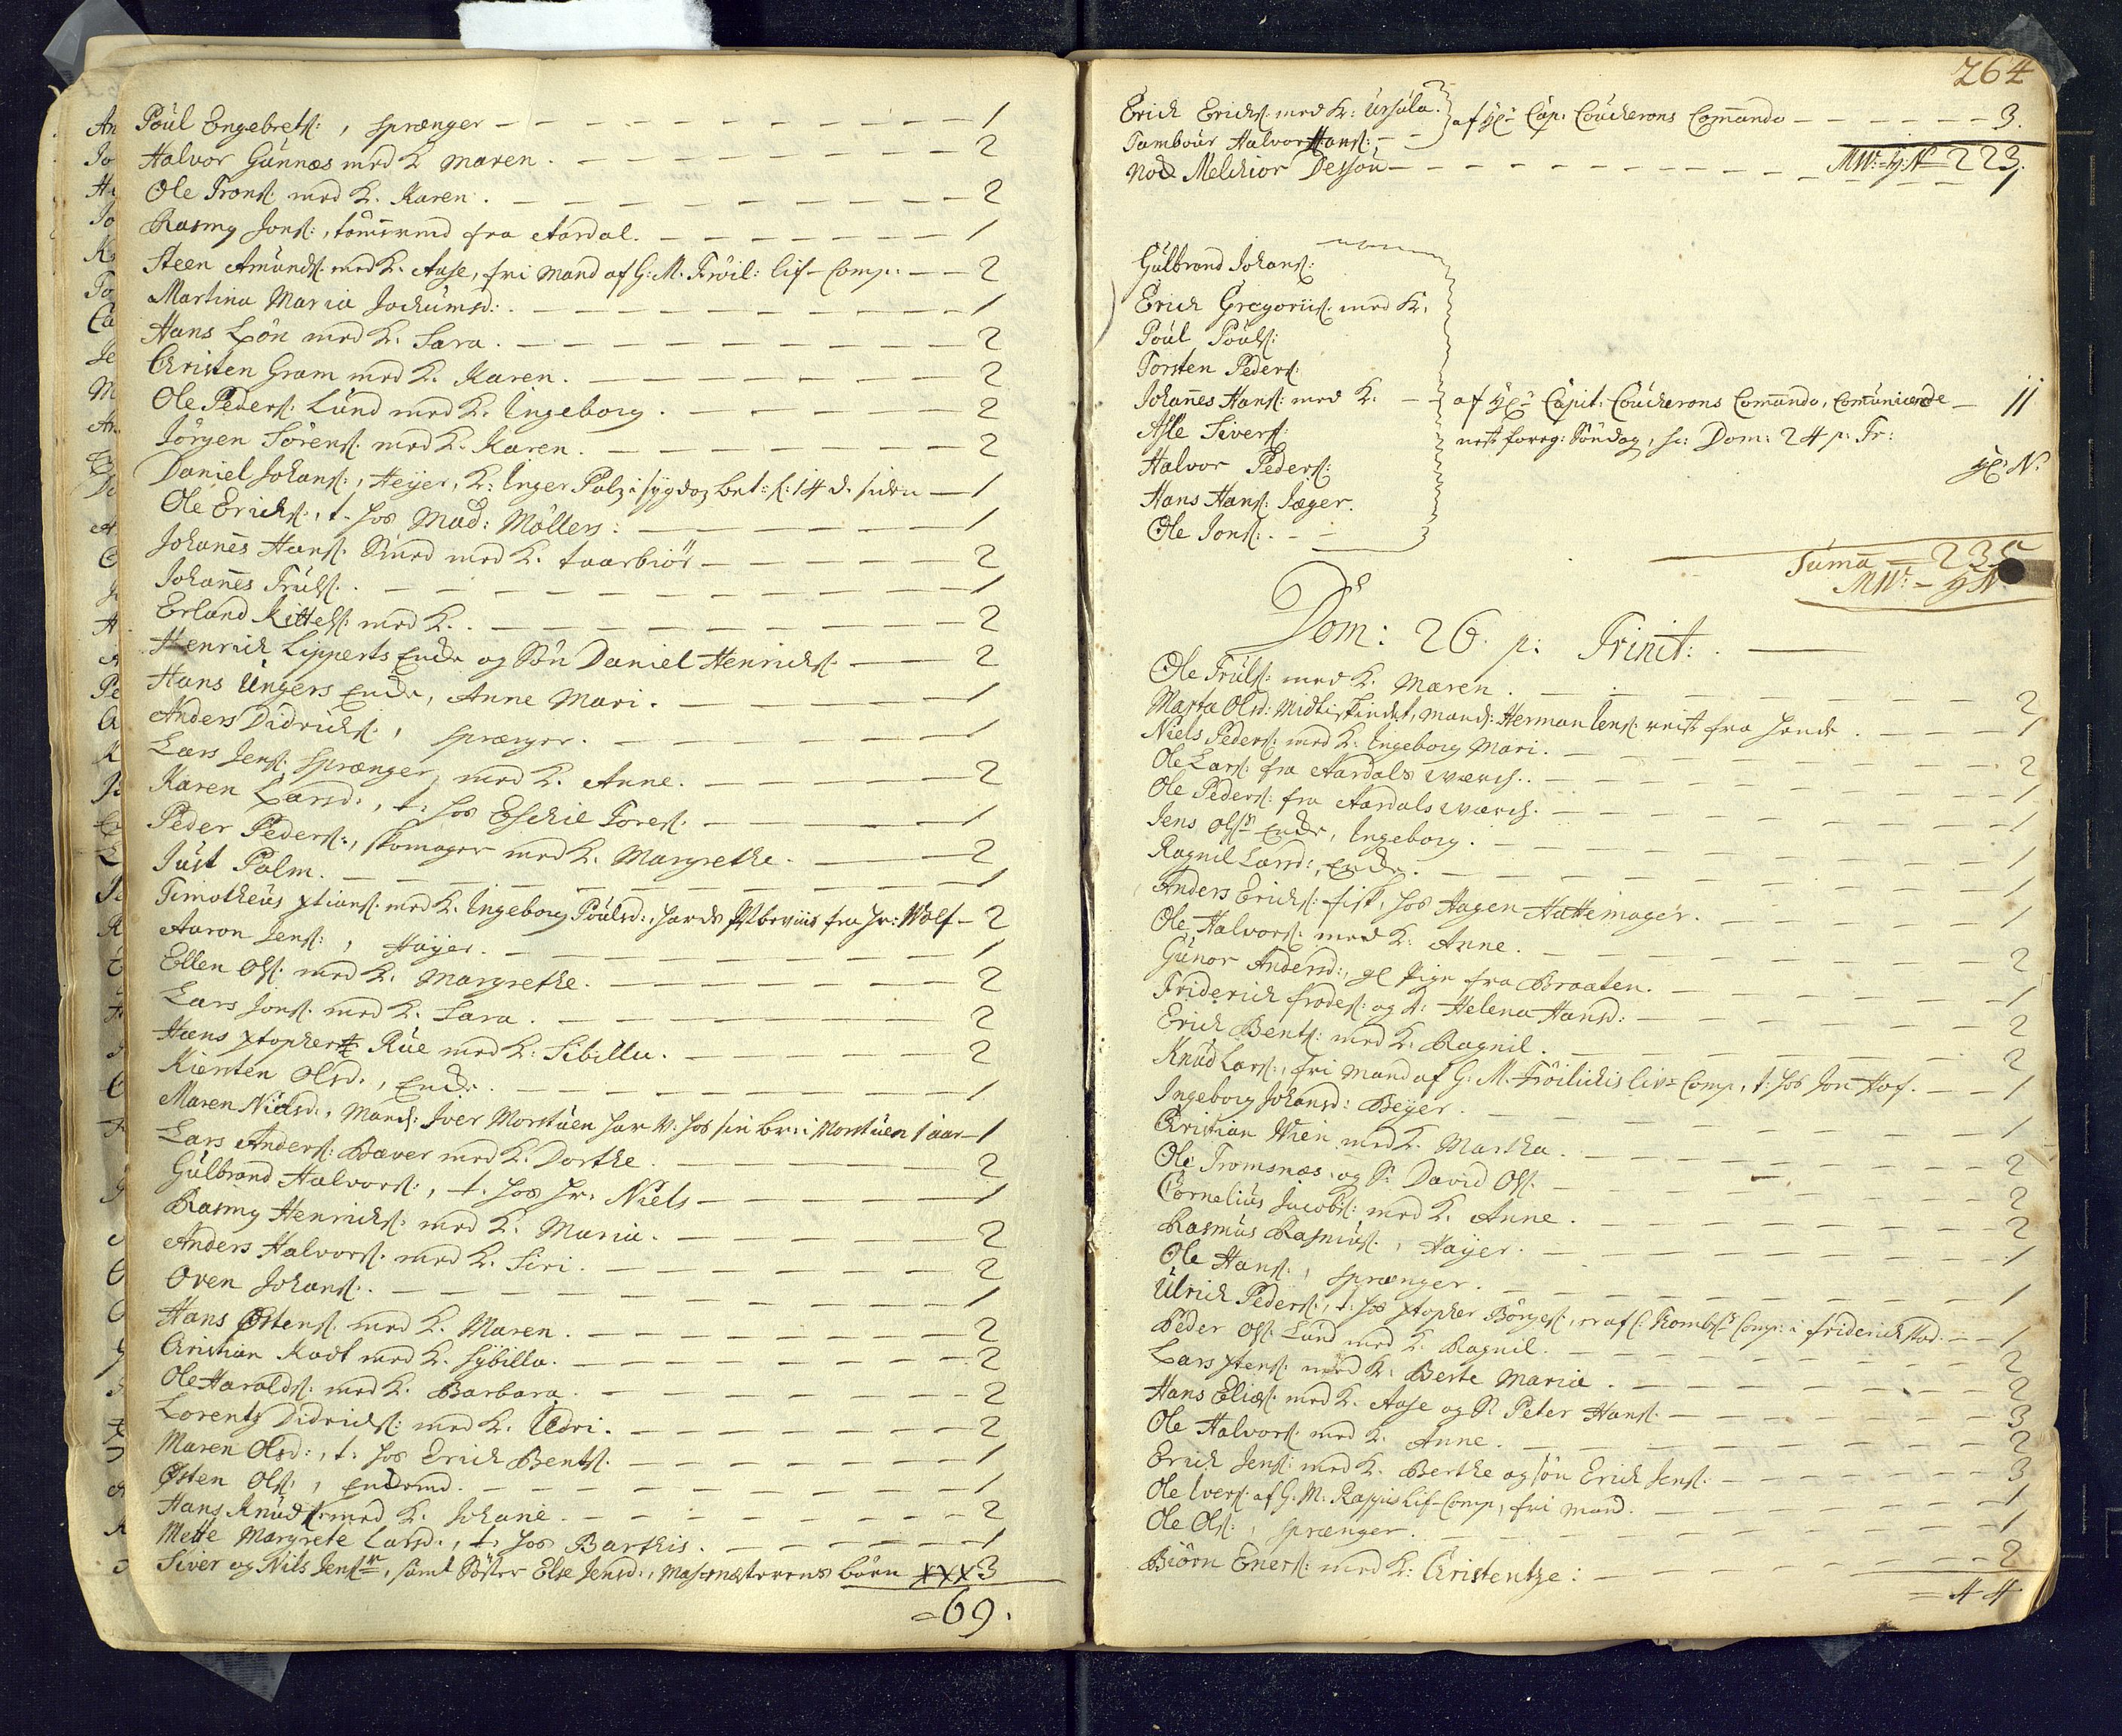 Poul Engebrets: , sprænger — 1
Halvor Gunnæs med K. Maren. — 2
Ole Trons: med K. Karen. — 2
Rasmg Jons: , tömmermd fra Aardal. — 1
Steen Amunds. med K. Aase, fri mand af G: M. Fröil: lif-Comp. — 2
Martina Maria Jochumsd: — 1
Hans Lön med K. Sara. — 2
Christen Gram med K. Karen. — 2
Ole Peders: Lund med K. Ingeborg. — 2
Jörgen Sörens: med K. Karen. — 2
Daniel Johans: , Heyer, K: Inger 14 d. siden — 1
Ole Ericks: , t. hos Mad: Möllers: — 1
Johannes Hans: Smed med K. Taarbiör — 2
Johannes Truls: — 1
Erland Kittels: med K. — 2
Henrich Lipperts Encke og Sön Daniel Henrichs: — 2
Hans Ungers Encke, Anne Mari. — 1
Anders Didrichs: , sprænger. — 1
Lars Jens: sprænger, med K. Anne. — 2
Karen Larsd: , t. hos Eschil Tores: — 1
Peder Peders: , skomager med K. Margrethe. — 2
Just Palm. — 1
Timotheus xtians: med K. Ingeborg Poulsd: , fra Hr: Wolf — 2
Aaron Jens: , Häyer. — 1
Ellen Ols: med K. Margrethe. — 2
Lars Jons: med K. Sara. — 2
Hans xtophers: Rüe med K: Sibilla. — 2
Kiersten Olsd: , Encke. — 1
Maren Nielsd: , Mands: Iver Morstuen har V. hos sin br: i Morstuen 1 aar — 1
Lars Anders: Bæver med K. Dorthe. — 2
Gulbrand Halvors: , t. hos Hr: Niels — 1
Rasmg Henrichs: med K. Maria. — 2
Anders Halvors: med K. Siri. — 2
Oven Johans: — 1
Hans Östens: med K. Maren. — 2
Christian Kadt med K. Sybilla. — 2
Ole Haralds: med K. Barbara. — 2
Lorentz Didrichs: med K. Edri. — 2
Maren Olsd: , t: hos Erich Bents: — 1
Østen Ols: , Enckemd. — 1
Hans Knuds: med K. Johane. — 2
Mette Margrete Larsd: , t. hos Barthis. — 1
Siver og Nils Jens:, samt Söster Else Jensd: , börn xxx 3
= 69.
264
Erich Erichs: med K: Ursula. — 3.
Tambour Halvor Hans: — af Hr Cap: Coucherons Comando
Nod Melchior Dessou — MW: — 223.
1
Gulbrand Johans:
Erich Gregoriis: med K.
Poul Pouls:
Torsten Peders:
Johannes Hans: med K. — af Hr Capit: Coucherons Comando, Comunicerede — 11
Asle Sivers: nest foreg: Söndag, sc: Dom: 24 p: Tr:
Halvor Peders:
Hans Hans: Jæger.
Ole Jons:
Suma = 235
MW: —
Dom: 26. p: Trinit:
Ole Truls: med K. Maren. — 2
Marta Olsd: Midtiskindet, Mands: Herman Iens: reist fra hende. — 1
Niels Peders: med K: Ingeborg Mari. — 2
Ole Lars: fra Aardals Værch. — 1
Ole Peders: fra Aardals værch. — 1
Jens Ols: Encke, Ingeborg. — 1
Ragnil Larsd: , Encke. — 1
Anders Erichs: fisk, hos Hagen Hattemager. — 1
Ole Halvors: med K: Anne. — 2
Gunor Andersd: , gl Pige fra Braaten. — 1
Friderich frodes: og t: Helena Hansd: — 2
Erich Bents: med K. Ragnil. — 2
Knud Lars: , fri mand af G: M. Fröilichis liv-Comp, t: hos Jon Hof. — 1
Ingeborg Johansd: Beyer. — 1
Christian Wien med K. Martha. — 2
Ole Tromsnæs og S: David Ols: — 2
Cornelius Jacobs: med K. Anne. — 2
Rasmus Rasmus: , Häyer. — 1
Ole Hans: , sprænger. — 1
Ulrich Peders: , t: hos xtopher Börges: , Comp: i friderichstad. — 1
Peder Ols: Lund med K. Ragnil. — 2
Lars xtens: med K. Berte Maria. — 2
Hans Elias: med K. Aase og S: Peter Hans: — 3
Ole Halvors: med K. Anne. — 2
Erich Jens: med K. Berthe og sön Erich Jens: — 3
Ole Ivers: af G: M: Rappis Lif-Comp, fri mand. — 1
Ole Ols: , sprænger. — 1
Biörn Eners: med K: Christentze: — 2
= 44